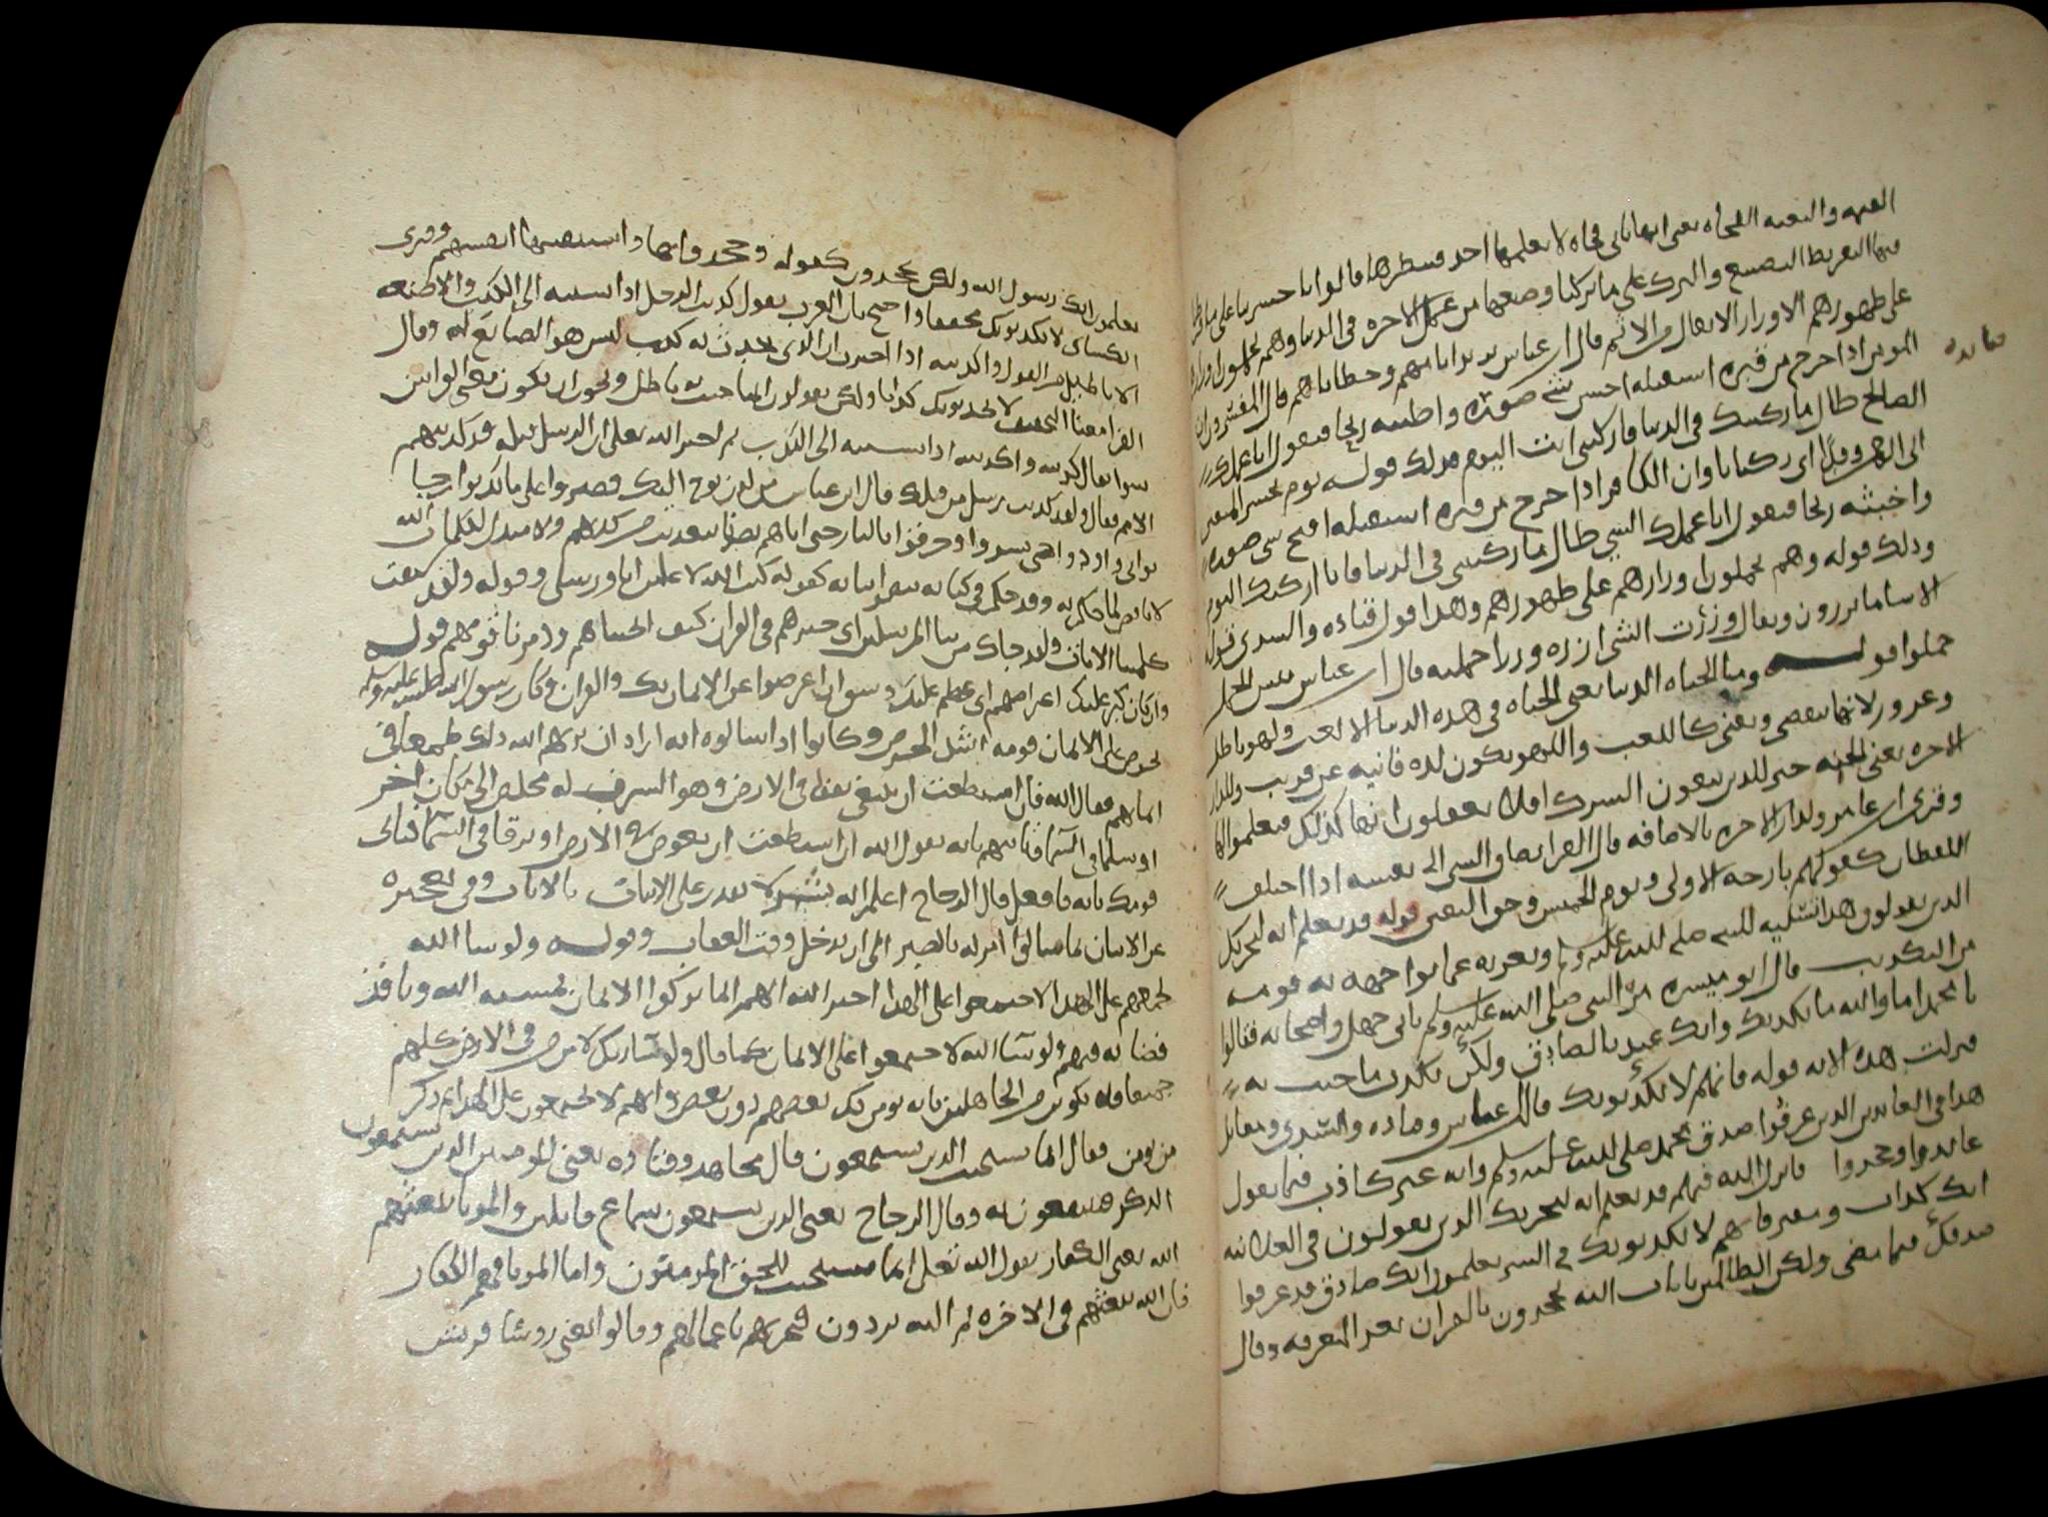 البغته والبغته الفجاه يعنى انها تاتى فجاه لا يعلمها احد فينظرها قالوا يا حسرتنا على ما فرطنا
فيها التفريط التضييع والترك على ما تركنا وضيعنا من عمل الاخره فى الدنيا وهم يحملون اوزارهم
على ظهورهم الاوزار الاثقال من الاثم قال ابن عباس يريد اثامهم وخطاياهم قال المفسرون ان
المومن اذا خرج من قبره استقبله احسن شى صوره واطيبه ريحا فيقول انا عملك
الصالح طال ما ركبتك فى الدنيا فاركبنى انت اليوم فذلك قوله يوم نحشر المتقين
الى الرحمن وفدا اى ركبانا وان الكافر اذا خرج من قبره استقبله اقبح شى صوره
واخبثه ريحا فيقول انا عملك السيى طال ما ركبتنى فى الدنيا فانا اركبك اليوم
وذلك قوله وهم يحملون اوزارهم على ظهورهم وهذا قول قتاده والسدى قوله
الا سا ما يزرون ويقال وزرت الشى ازره وزرا حملته قال ابن عباس بيس الحمل
حملوا قوله وما الحياه الدنيا يعنى الحياه فى هذه الدنيا الا لعب ولهو باطل
وغرور لانها تنقضى وتفنى كاللعب واللهو يكون لذه فانيه عن قريب وللدار
الاخره يعنى الجنه خير للذين يتقون الشرك افلا يعقلون انها كذلك فيعملوا لها
وقرى ابن عامر ولدار الاخره بالاضافه قال الفرا يضاف الشى الى نفسه اذا اختلف
اللفظان كقولهم بارحه الاولى ويوم الخميس وحق اليقين قوله قد نعلم انه ليحزنك
الذى يقولون هذا تسليه للنبى صلى الله عليه وسلم وتعزيه عما يواجهه به قومه
من التكذيب قال ابو ميسره مر النبى صلى الله عليه وسلم بابى جهل واصحابه فقالوا
يا محمد اما والله ما نكذبك وانك عندنا لصادق ولكن نكذب ما جيت به
فنزلت هذه الايه قوله فانهم لا يكذبونك قال ابن عباس وقتاده والسدى ومقاتل
هذا فى المعاندين الذين عرفوا صدق محمد صلى الله عليه وسلم وانه غير كاذب فيما يقول
عاندوا وجحدوا فانزل الله فيهم قد نعلم انه ليحزنك الذى يقولون فى العلانيه
انك كذاب ومفتر فانهم لا يكذبونك فى السر يعلمون انك صادق قد عرفوا
صدقك فيما مضى ولكن الظالمين بايات الله يجحدون بالقران بعد المعرفه وقال
فايده
يعلمون انك رسول الله ولكن يجحدون كقوله وجحدوا بها واستيقنتها انفسهم وقرى
الكساى لا يكذبونك مخففا واحتج بان العرب تقول كذبت الرجل اذا نسبته الى الكذب والا صنعه
الاباطيل من القول واكذبته اذا اخبرت ان الذى يحدث به كذب ليس هو الصانع له وقال
الفرا معنى التخفيف لا يجدونك كذابا ولكن يقولون ان ما جيت به باطل ويجوز ان يكون معنى القراتين
سوا يقال كذبته واكذبته اذا نسبته الى الكذب ثم اخبر الله تعلى ان الرسل قبله قد كذبتهم
الامم فقال ولقد كذبت رسل من قبلك قال ابن عباس من لدن نوح اليك فصبروا على ما كذبوا رجا
ثوابى واوذوا حتى نشروا وحرقوا بالنار حتى اتاهم نصرنا بتعذيب من كذبهم ولا مبدل لكلمات الله
لا ناقض لما حكم به وقد حكم فى كتابه بنصر انبيايه كقوله كتب الله لاغلبن انا ورسلى وقوله ولقد سبقت
كلمتنا الايات ولقد جاك من نبا المرسلين اى خبرهم فى القران كيف انجيناهم ودمرنا قومهم قوله
وان كان كبر عليك اعراضهم اى عظم عليك وشق ان اعرضوا عن الايمان بك والقران وكان رسول الله صلى الله عليه وسلم
يحرص على الايمان قومه اشد الحرص وكانوا اذا سالوه ايه اراد ان يريهم الله ذلك طمعا فى
ايمانهم فقال الله فان استطعت ان تبتغى نفقا فى الارض وهو السرب له مخلص الى مكان اخر
او سلما فى السما فتاتيهم بايه يقول الله ان استطعت ان تغوص فى الارض او ترقا فى السما فتاتى
قومك بايه فافعل قال الزجاج اعلم انه بشر لا يقدر على الاتيان بالايات وفى تعجيزه
عن الاتيان بما سالوا امر له بالصبر الى ان يدخل وقت العقاب وقوله ولو شا الله
لجمعهم على الهدا لاجتمعوا على الهدا اخبر الله انهم انما تركوا الايمان بمشيه الله ونافذ
قضايه فيهم ولو شا الله لاجتمعوا على الايمان كما قال ولو شا ربك لامن من فى الارض كلهم
جميعا فلا تكونن من الجاهلين بانه يومن بك بعضهم دون بعض وانهم لا يجتمعون على الهدا ثم ذكر
من يومن فقال انما يستجيب الذين يسمعون قال مجاهد وقتاده يعنى المومنين الذين يستمعون
الذكر فينتفعون به وقال الزجاج يعنى الذين يسمعون سماع قابلين والموتا يبعثهم
الله يعنى الكفار يقول الله تعلى انما يستجيب للحق المومنون واما الموتا فهم الكفار
فان الله يبعثهم فى الاخره ثم اليه يردون فيجزيهم باعمالهم وقالوا يعنى روسا قريش